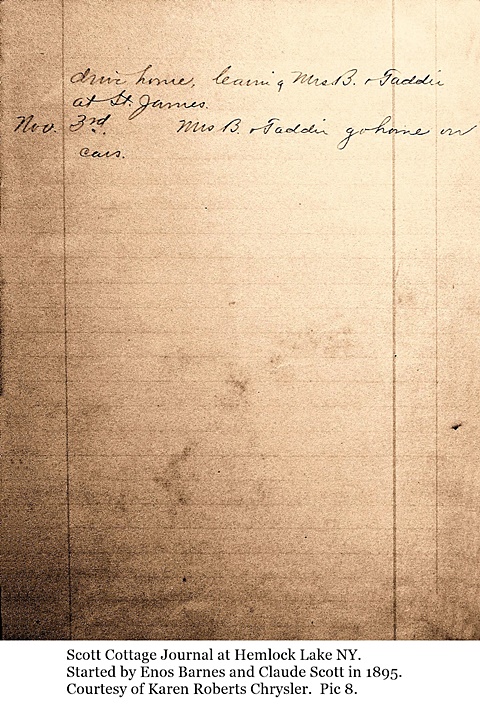 drive home, leaving Mrs B. & Taddie
at St. James.
Nov. 3rd. Mrs B. & Taddie go home on
cars.
Scott Cottage Journal at Hemlock Lake NY.
Started by Enos Barnes and Claude Scott in 1895.
Courtesy of Karen Roberts Chrysler. Pic 8.